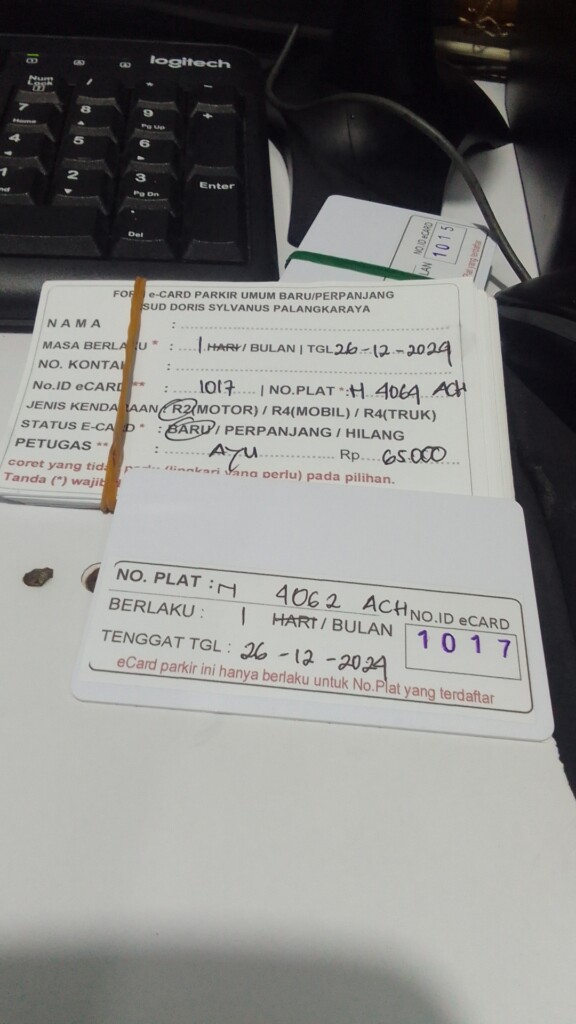 logitech
Num Lock
/
*
-
7 Home
8
9 Pg Up
+
4
5
6
1
2
3 Pg Dn
Enter
Del
NO.ID eCARD
1015
FOR e-CARD PARKIR UMUM BARU/PERPANJANG
SUD DORIS SYLVANUS PALANGKARAYA
NAMA :
MASA BERLAKU * : 1 HARI / BULAN | TGL 26-12-2024
NO. KONTAK :
No.ID eCARD ** : 1017 | NO.PLAT *: H 4064 ACH
JENIS KENDARAAN : R2(MOTOR) / R4(MOBIL) / R4(TRUK)
STATUS E-CARD * : BARU / PERPANJANG / HILANG
PETUGAS ** : AYU Rp. 65.000
coret yang tidak perlu (lingkari yang perlu) pada pilihan.
Tanda (*) wajib
NO. PLAT : H 4062 ACH
BERLAKU : 1 HARI / BULAN
NO.ID eCARD
1017
TENGGAT TGL : 26-12-2024
eCard parkir ini hanya berlaku untuk No.Plat yang terdaftar